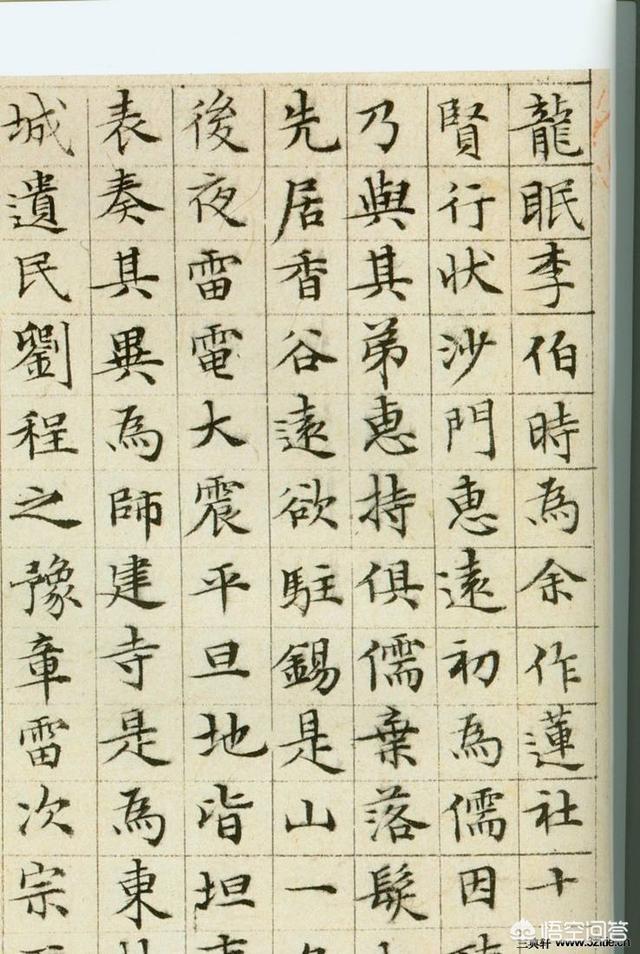 龍眠李伯時為余作蓮社十
賢行狀沙門惠遠初為儒因
乃與其弟惠持俱儒棄落髮
先居香谷遠欲駐錫是山一
後夜雷電大震平旦地皆坦
表奏其異為師建寺是為東
城遺民劉程之豫章雷次宗
悟空问答
三真轩 www.32ide.cn